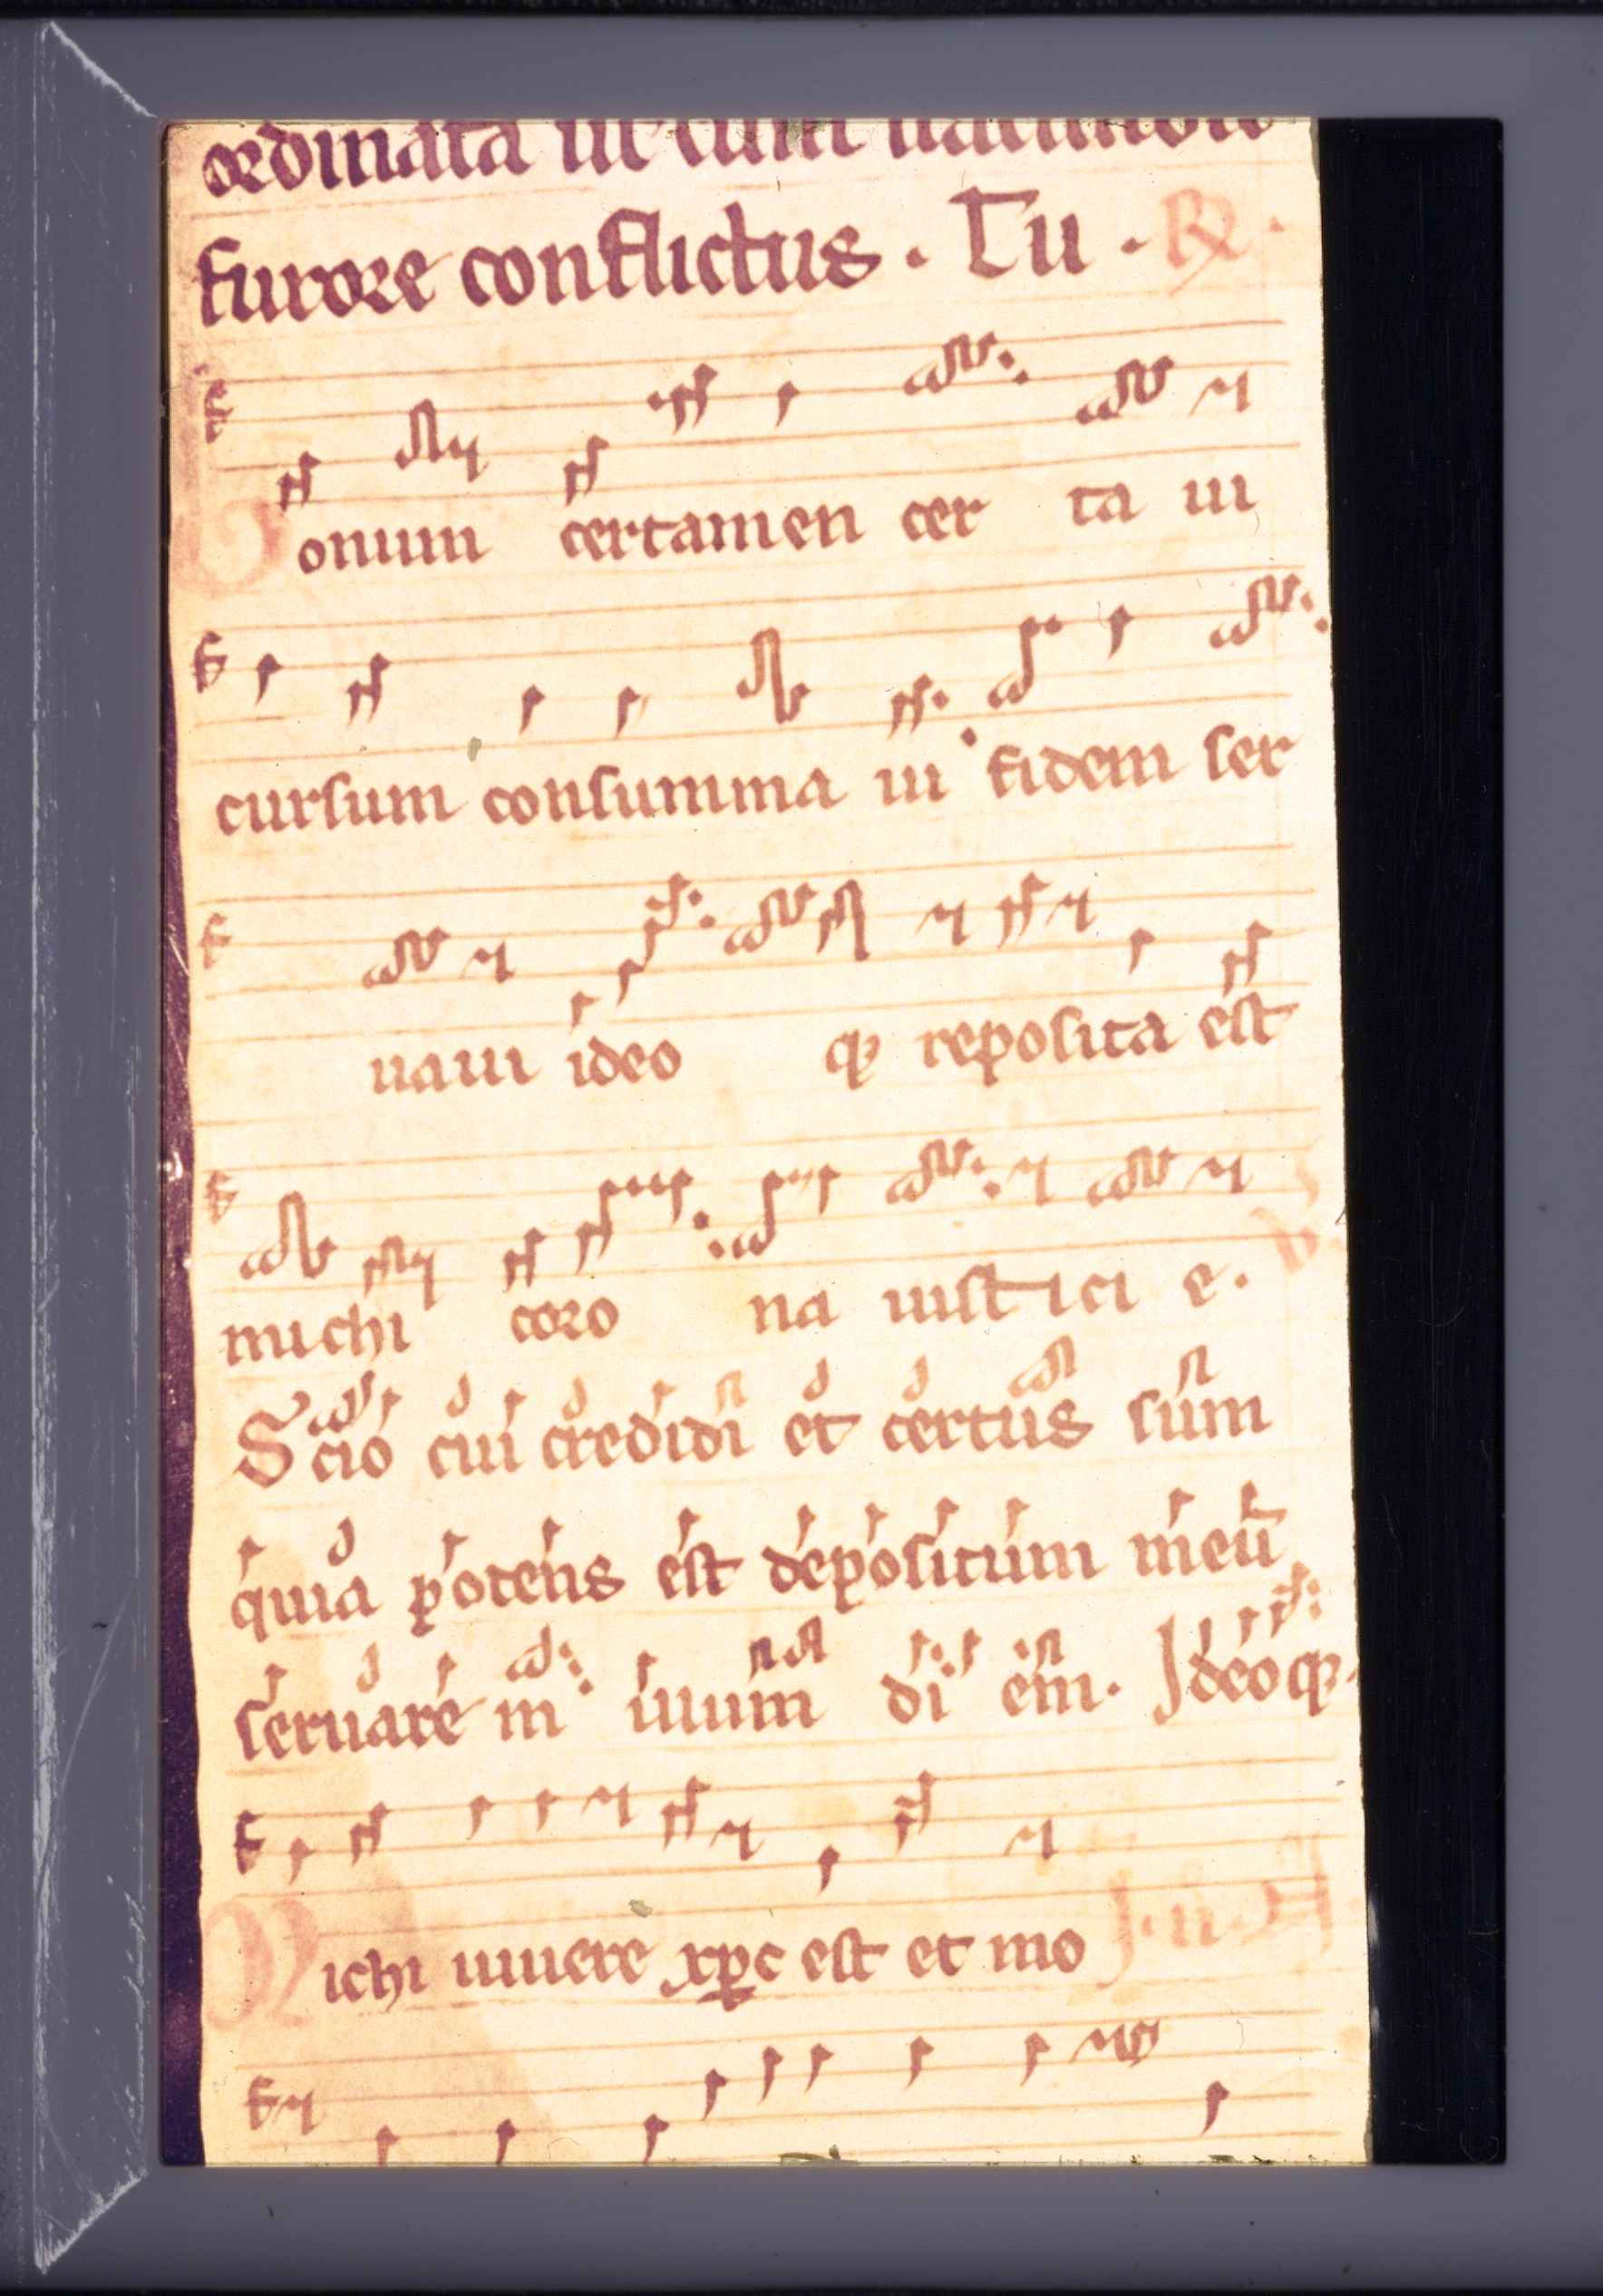 ordinata ut cum
furore conflictus. Tu. R
Bonum certamen cer ta ui
cursum consumma ui fidem ser
uaui ideo q reposita est
michi coro na iusti ci e.
Scio cui credidi et certus sum
quia potens est depositum meū
seruare in illum di em. Ideoq
Michi uiuere xpc est et mo